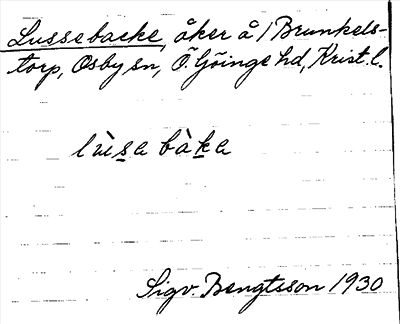 Lussebacke, åker å 1 Brunkels-
torp, Osby sn, Ö. Göinge hd, Krist. l.
lùsa bàka
Sigv. Bengtsson 1930